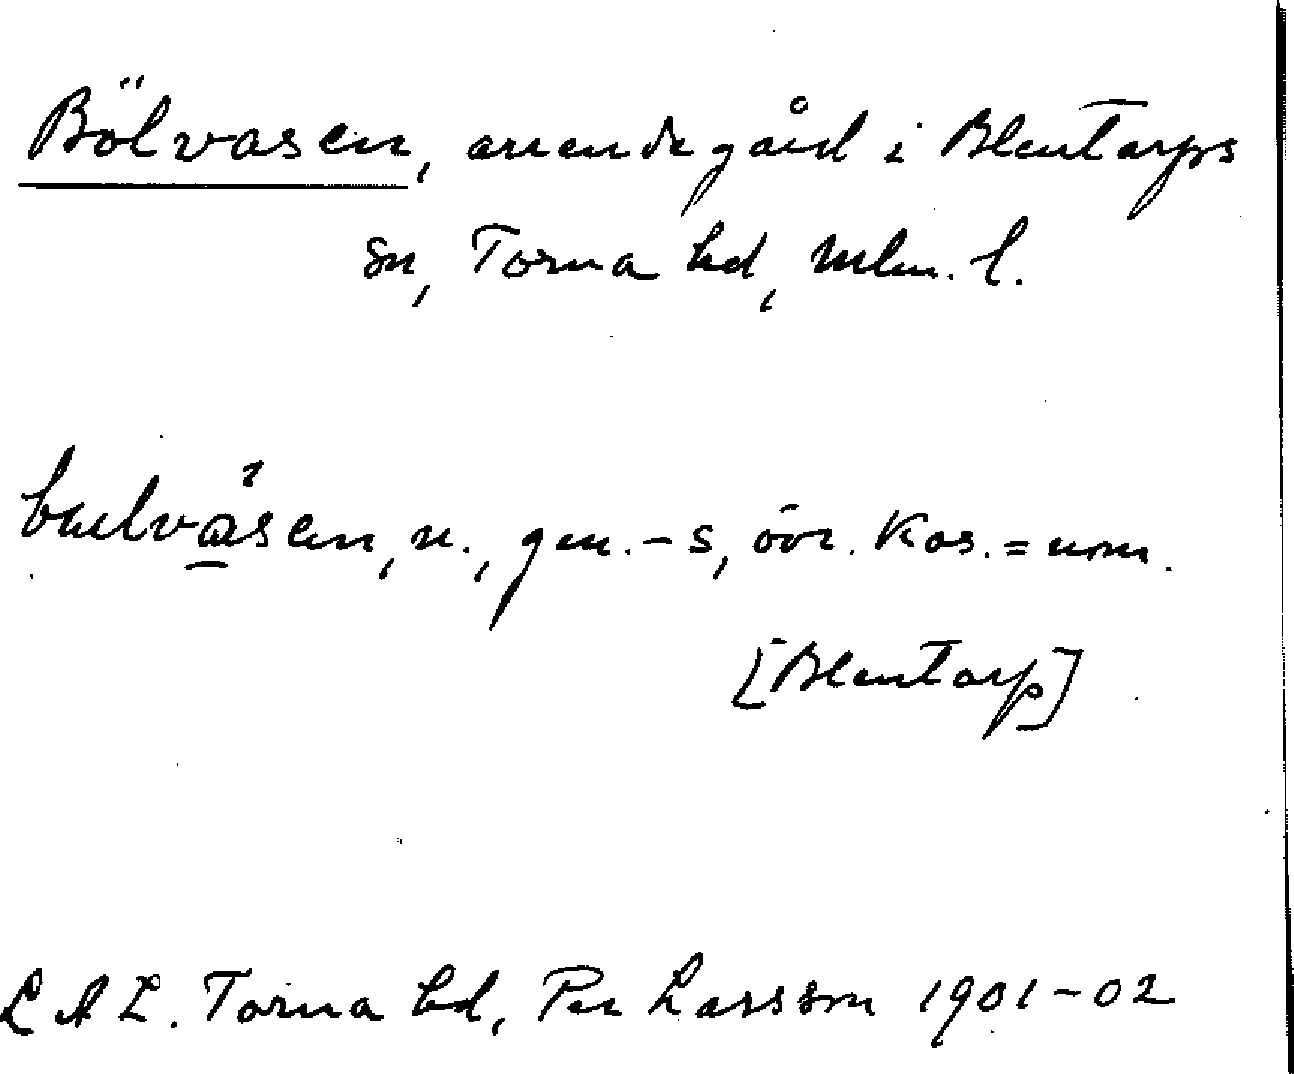 Bölvasen, arrendegård i Blentarps
sn, Torna hd, Mlm. l.
n., gen. -s, övr. kas. = nom.
[Blentarp]
L A L. Torna hd, Per Larsson 1901-02